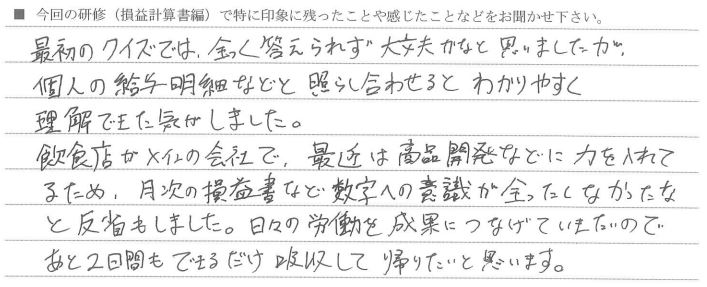 ■ 今回の研修（損益計算書編）で特に印象に残ったことや感じたことなどをお聞かせ下さい。
最初のクイズでは、全く答えられず大丈夫かなと思いましたが、
個人の給与明細などと照らし合わせるとわかりやすく
理解できた気がしました。
飲食店がメインの会社で、最近は商品開発などに力を入れて
るため、月次の損益書など数字への意識が全ったくなかったな
と反省もしました。日々の労働を成果につなげていきたいので
あと2日間もできるだけ吸収して帰りたいと思います。